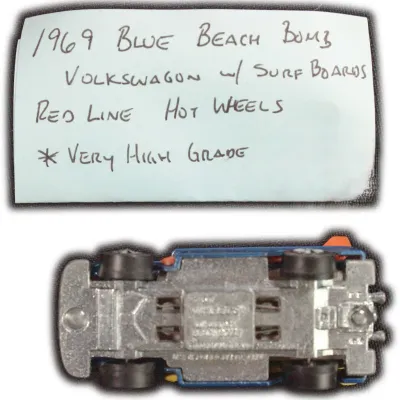 1969 BLUE BEACH BOMB
VOLKSWAGON w/ SURF BOARDS
RED LINE HOT WHEELS
* VERY HIGH GRADE